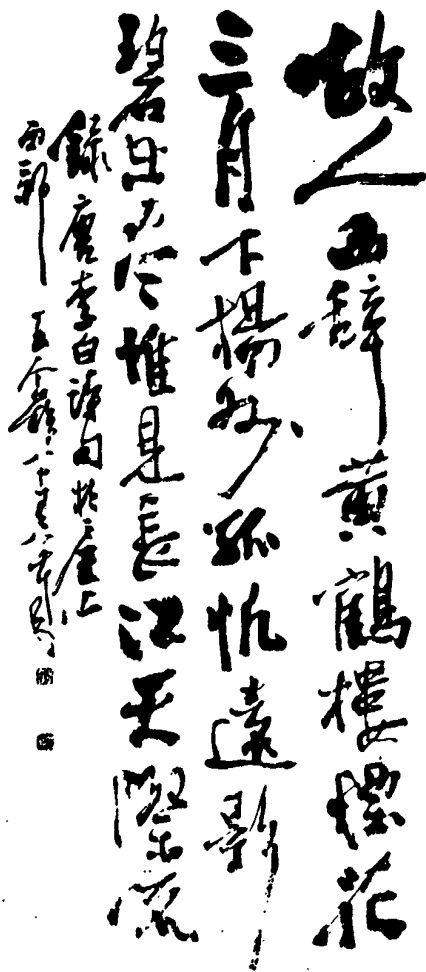 故人西辭黃鶴樓煙花
三月下揚州孤帆遠影
碧空尽惟見長江天際流
錄唐李白詩句於滬上
西郊 王个簃八十